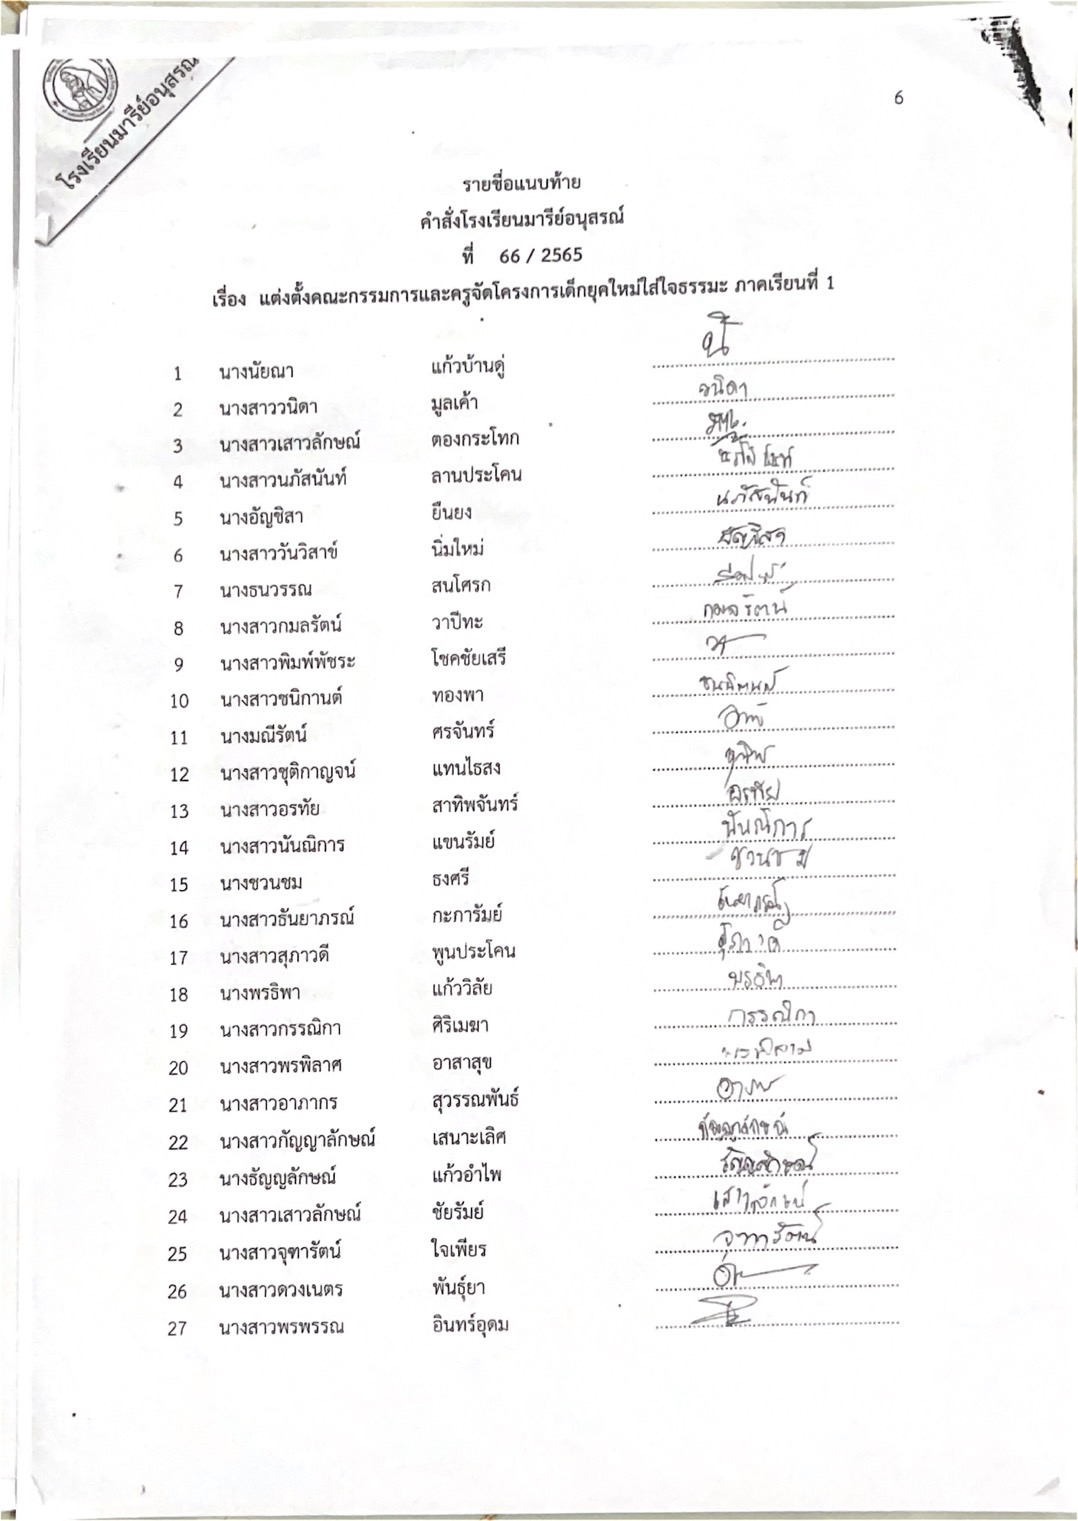 โรงเรียนมารีย์อนุสรณ์
6
รายชื่อแนบท้าย
คำสั่งโรงเรียนมารีย์อนุสรณ์
ที่ 66 / 2565
เรื่อง แต่งตั้งคณะกรรมการและครูจัดโครงการเด็กยุคใหม่ใส่ใจธรรมะ ภาคเรียนที่ 1
1 นางนัยณา แก้วบ้านดู่
2 นางสาววนิดา มูลเค้า วนิดา
3 นางสาวเสาวลักษณ์ ตองกระโทก
4 นางสาวนภัสนันท์ ลานประโคน
5 นางอัญชิสา ยืนยง นภัสนันท์
6 นางสาววันวิสาข์ นิ่มใหม่ อัญชิสา
7 นางธนวรรณ สนโศรก
8 นางสาวกมลรัตน์ วาปีทะ กมลรัตน์
9 นางสาวพิมพ์พัชระ โชคชัยเสรี
10 นางสาวชนิกานต์ ทองพา
11 นางมณีรัตน์ ศรจันทร์
12 นางสาวชุติกาญจน์ แทนไธสง
13 นางสาวอรทัย สาทิพจันทร์ อรทัย
14 นางสาวนันณิการ แขนรัมย์ นันณิการ
15 นางชวนชม ธงศรี ชวนชม
16 นางสาวธันยาภรณ์ กะการัมย์ ธันยาภรณ์
17 นางสาวสุภาวดี พูนประโคน สุภาวดี
18 นางพรธิพา แก้ววิลัย พรธิพา
19 นางสาวกรรณิกา ศิริเมฆา กรรณิกา
20 นางสาวพรพิลาศ อาสาสุข
21 นางสาวอาภากร สุวรรณพันธ์
22 นางสาวกัญญาลักษณ์ เสนาะเลิศ กัญญาลักษณ์
23 นางธัญญลักษณ์ แก้วอำไพ ธัญญลักษณ์
24 นางสาวเสาวลักษณ์ ชัยรัมย์ เสาวลักษณ์
25 นางสาวจุฑารัตน์ ใจเพียร จุฑารัตน์
26 นางสาวดวงเนตร พันธุ์ยา
27 นางสาวพรพรรณ อินทร์อุดม